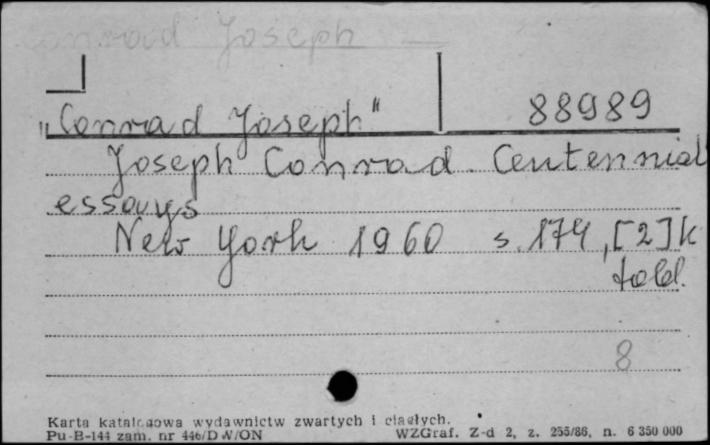 Conrad Joseph —
„Conrad Joseph" 88989
Joseph Conrad. Centennial
essays
New York 1960 s. 174, [2] k
tabl.
8
Karta katalogowa wydawnictw zwartych i ciągłych.
Pu-B-144 zam. nr 446/DW/ON WZGraf. Z-d 2, z. 255/86, n. 6 350 000